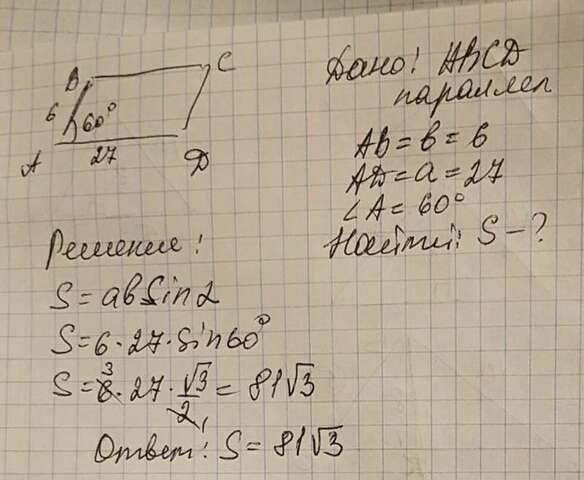 B
C
6
60°
A
27
D
Дано: ABCD
параллел
AB = b = 6
AD = a = 27
∠A = 60°
Найти: S - ?
Решение:
S = ab Sin α
S = 6 · 27 · Sin 60°
S = 6̸³ · 27 · √3/2̸₁ = 81√3
Ответ: S = 81√3